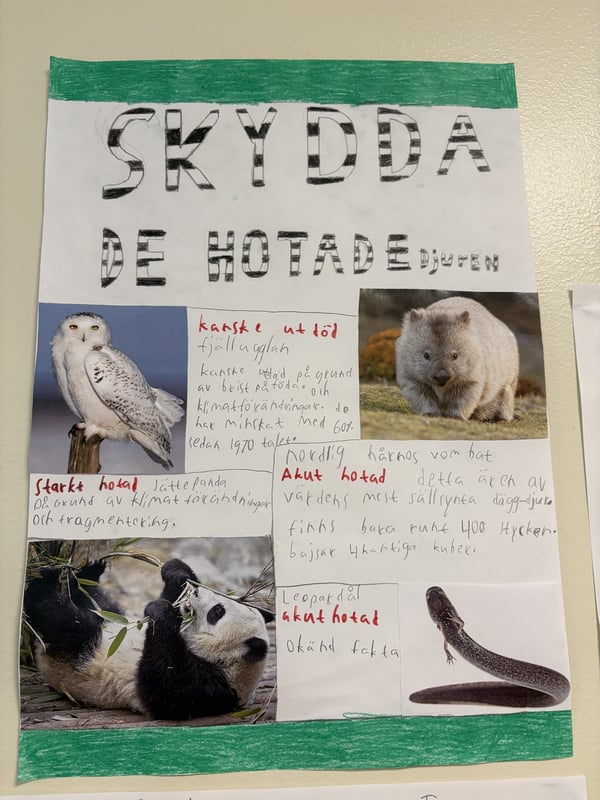 SKYDDA
DE HOTADE DJUREN
kanske utdöd
fjällugglan
kanske utdöd på grund
av brist på föda. och
klimatförändringar. de
har minskat med 60%
sedan 1970 talet.
nordlig hårnos vombat
Akut hotad detta är en av
världens mest sällsynta dägg-djur.
finns bara runt 400 stycken.
bajsar 4kantiga kuber.
Starkt hotad Jättepanda
på grund av klimatförändningar
och fragmentering.
Leopardål
akut hotad
Okänd fakta